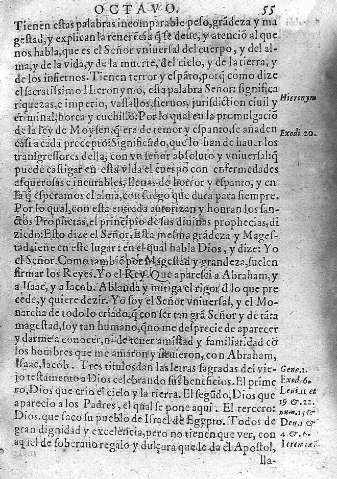 OCTAVO. 55
Tienen estas palabras incomparable peso, grãdeza y ma
gestad, y explican la reuerẽcia q̃ se deue, y atenció al que
nos habla, que es el Señor vniuersal del cuerpo, y del al-
ma, y de la vida, y de la muerte, del cielo, y de la tierra, y
de los infiernos. Tienen terror y espãto, porq̃ como dize
el sacratissimo Hieronymo, esta palabra Señor: significa
riquezas, e imperio, vasallos, fieruos, jurisdiction ciuil y
criminal, horca y cuchillo: Por lo qual en la promulgació
de la ley de Moysen, q̃ era de temor y espanto, se añaden
casi a cada precepto: Significãdo, que lo han de auer los
transgressores della, con vn señor absoluto y vniuersal, q̃
puede castigar en esta vida el cuerpo con enfermedades
asquerosas e incurables, llenas de horror y espanto, y en
la q̃ esperamos el alma, con fuego que dura para siempre.
Por lo qual, con esta entrada autorizan y honran los san-
ctos Prophetas, el principio de sus diuinas prophecias, di
ziẽdo: Esto dize el Señor. Esta mesma grãdeza y Mages-
tad, tiene en este lugar: en el qual habla Dios, y dize: Yo
el Señor. Como tambiẽ por Magestad y grandeza, suelen
firmar los Reyes. Yo el Rey. Que apareci a Abraham, y
a Isaac, y a Iacob. Ablanda y mitiga el rigor d lo que pre
cede, y quiere dezir. Yo soy el Señor vniuersal, y el Mo-
narcha de todo lo criado, q̃ con ser tan grã Señor y de tãta
magestad, soy tan humano, q̃ no me desprecie de aparecer
y darme a conocer, ni de tener amistad y familiaridad cõ
los hombres que me amaron y siruieron, con Abraham,
Isaac, Iacob. Tres titulos dan las letras sagradas del vie-
jo testamento a Dios celebrando sus beneficios. El prime
ro, Dios que crio el cielo y la tierra. El segũdo, Dios que
aparecio a los Padres, el qual se pone aqui. El tercero:
Dios, que saco su pueblo de Israel de Egypto. Todos de
gran dignidad y excelencia, pero no tienen que ver, con
aquel de soberano regalo y dulçura que le da el Apostol,
lla-
Hieronym
Exodi 20.
Gene. 1.
Exod. 6.
Leui. 11 et
19 & 22.
num. 15 &
Deu. 1 &
4 & 6.